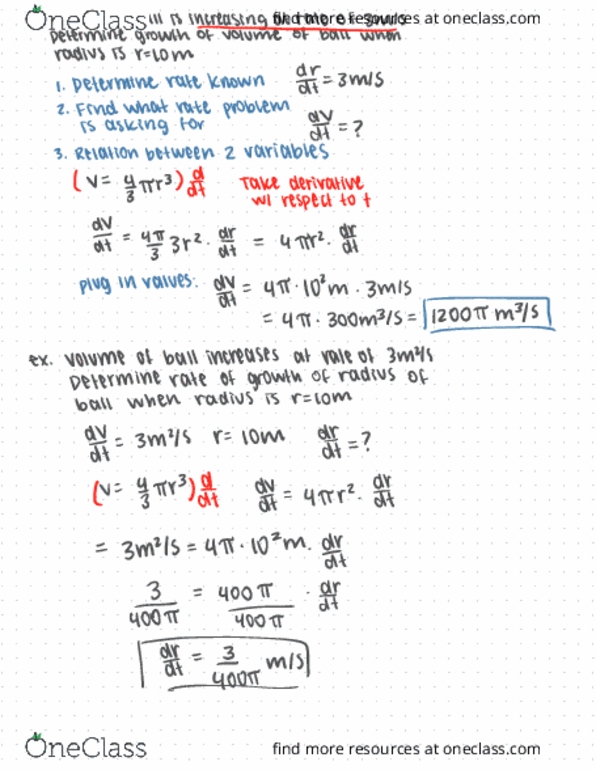 OneClass
find more resources at oneclass.com
is increasing
Determine growth of volume of ball when
radius is r=10m
1. Determine rate known dr/dt = 3m/s
2. Find what rate problem
is asking for dV/dt = ?
3. Relation between 2 variables
(V= 4/3 πr³) d/dt Take derivative
w/ respect to t
dV/dt = 4π/3 3r² · dr/dt = 4πr² · dr/dt
Plug in values: dV/dt = 4π · 10²m · 3m/s
= 4π · 300m³/s = 1200π m³/s
ex. Volume of ball increases at rate of 3m³/s
Determine rate of growth of radius of
ball when radius is r=10m
dV/dt = 3m³/s r= 10m dr/dt = ?
(V= 4/3 πr³) d/dt dV/dt = 4πr² · dr/dt
= 3m³/s = 4π · 10²m · dr/dt
3/400π = 400π/400π · dr/dt
dr/dt = 3/400π m/s
OneClass
find more resources at oneclass.com